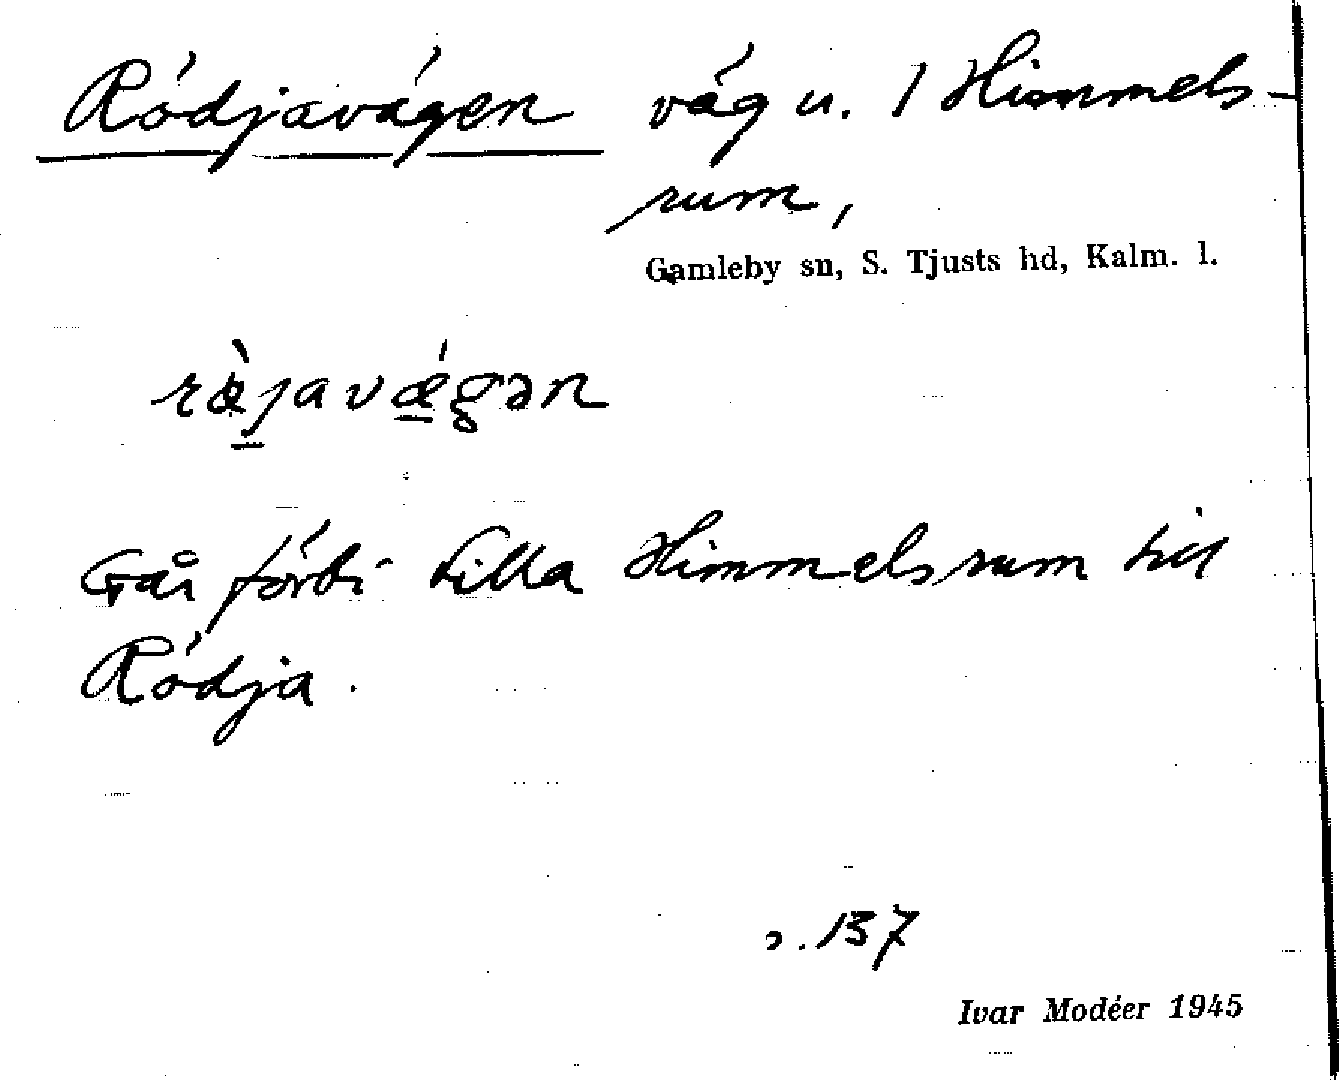 Rödjavägen väg u. 1 Himmels-
rum,
Gamleby sn, S. Tjusts hd, Kalm. l.
Går förbi Lilla Himmelsrum till
Rödja.
s. 137
Ivar Modéer 1945